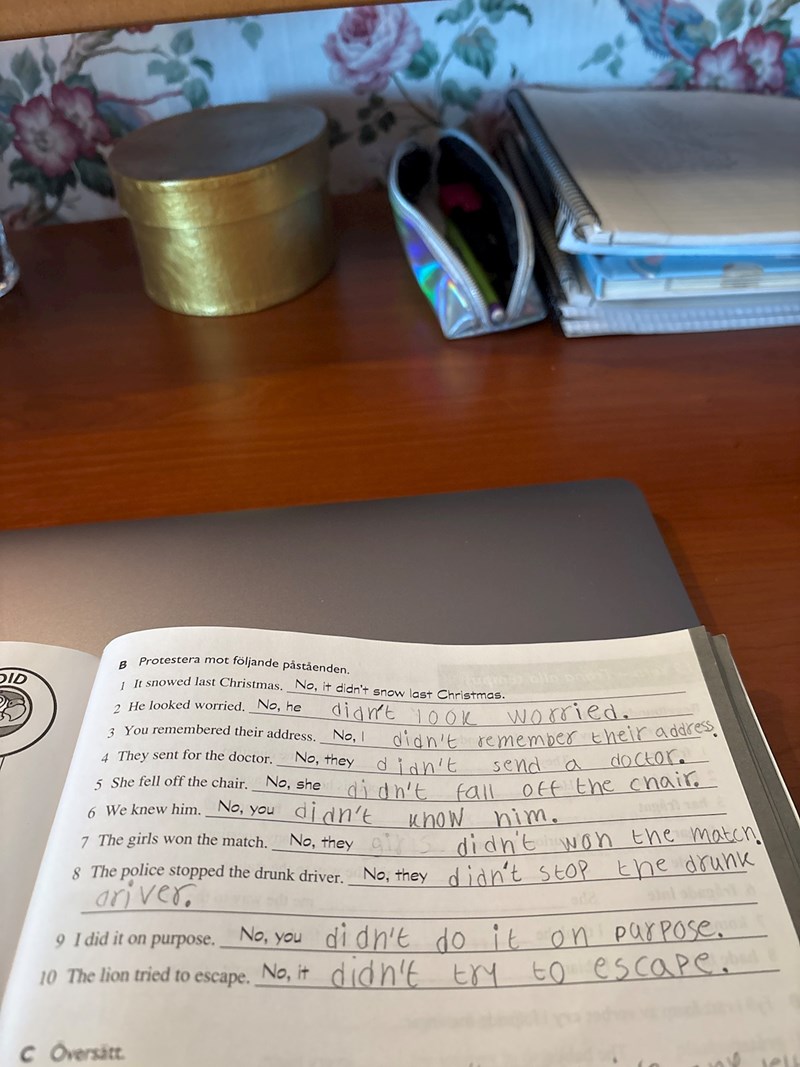 DID
B Protestera mot följande påståenden.
1 It snowed last Christmas. No, it didn't snow last Christmas.
2 He looked worried. No, he didn't look worried.
3 You remembered their address. No, I didn't remember their address.
4 They sent for the doctor. No, they didn't send a doctor.
5 She fell off the chair. No, she didn't fall off the chair.
6 We knew him. No, you didn't know him.
7 The girls won the match. No, they girls didn't won the match.
8 The police stopped the drunk driver. No, they didn't stop the drunk
driver.
9 I did it on purpose. No, you didn't do it on purpose.
10 The lion tried to escape. No, it didn't try to escape.
C Översätt.